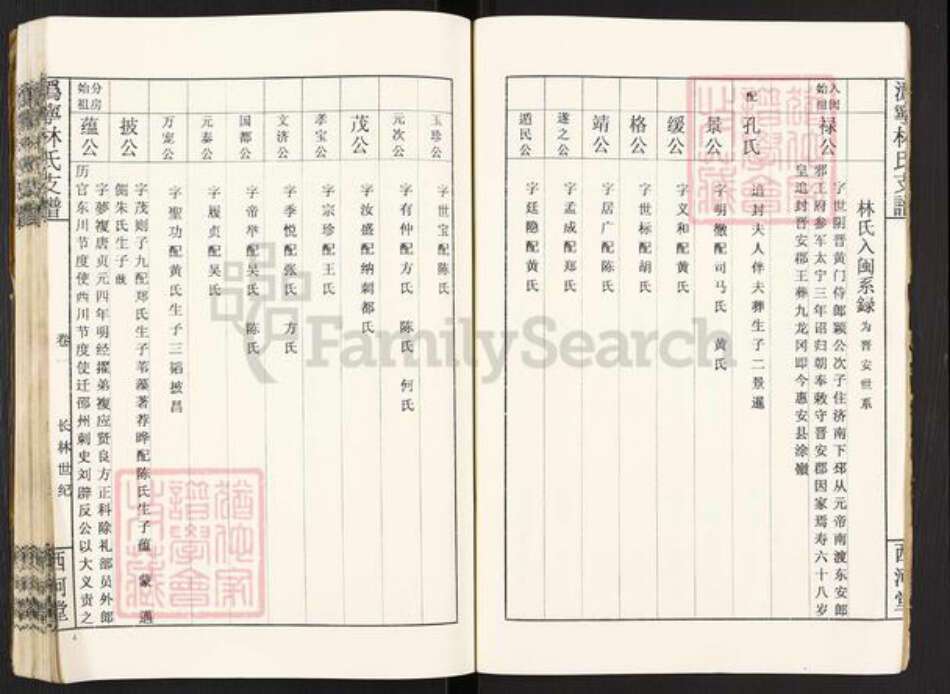 林氏入闽系録 为晋安世系
入闽始祖 禄公
字世阴晋黄门侍郎颖公次子住济南下邳从元帝南渡东安郎
邪王府参军太宁三年诏归朝奉敕守晋安郡因家焉寿六十八岁
皇追封晋安郡王葬九龙冈即今惠安县涂岭
配 孔氏
追封夫人伴夫葬生子二景暹
景公 字明撤配司马氏 黄氏
缓公 字义和配黄氏
格公 字世标配胡氏
靖公 字居广配陈氏
遂之公 字孟成配郑氏
遁民公 字廷隐配黄氏
玉珍公 字世宝配陈氏
元次公 字有仲配方氏 陈氏 何氏
茂公 字汝盛配纳刺都氏
孝宝公 字宗珍配王氏
文济公 字季悦配张氏 方氏
国都公 字帝举配吴氏 陈氏
元泰公 字履贞配吴氏
万宠公 字聖功配黄氏生子三韬披昌
披公 字茂则子九配郑氏生子苇藻著荐晔配陈氏生子蕴 蒙 迈
侧朱氏生子蔇
分房始祖 蕴公
字夢複唐贞元四年明经擢弟複应贤良方正科除礼部员外郎
历官东川节度使西川节度使迁邵州刺史刘辟反公以大义责之
溈寧林氏支譜
卷
长林世纪
西河堂
西河堂
FamilySearch